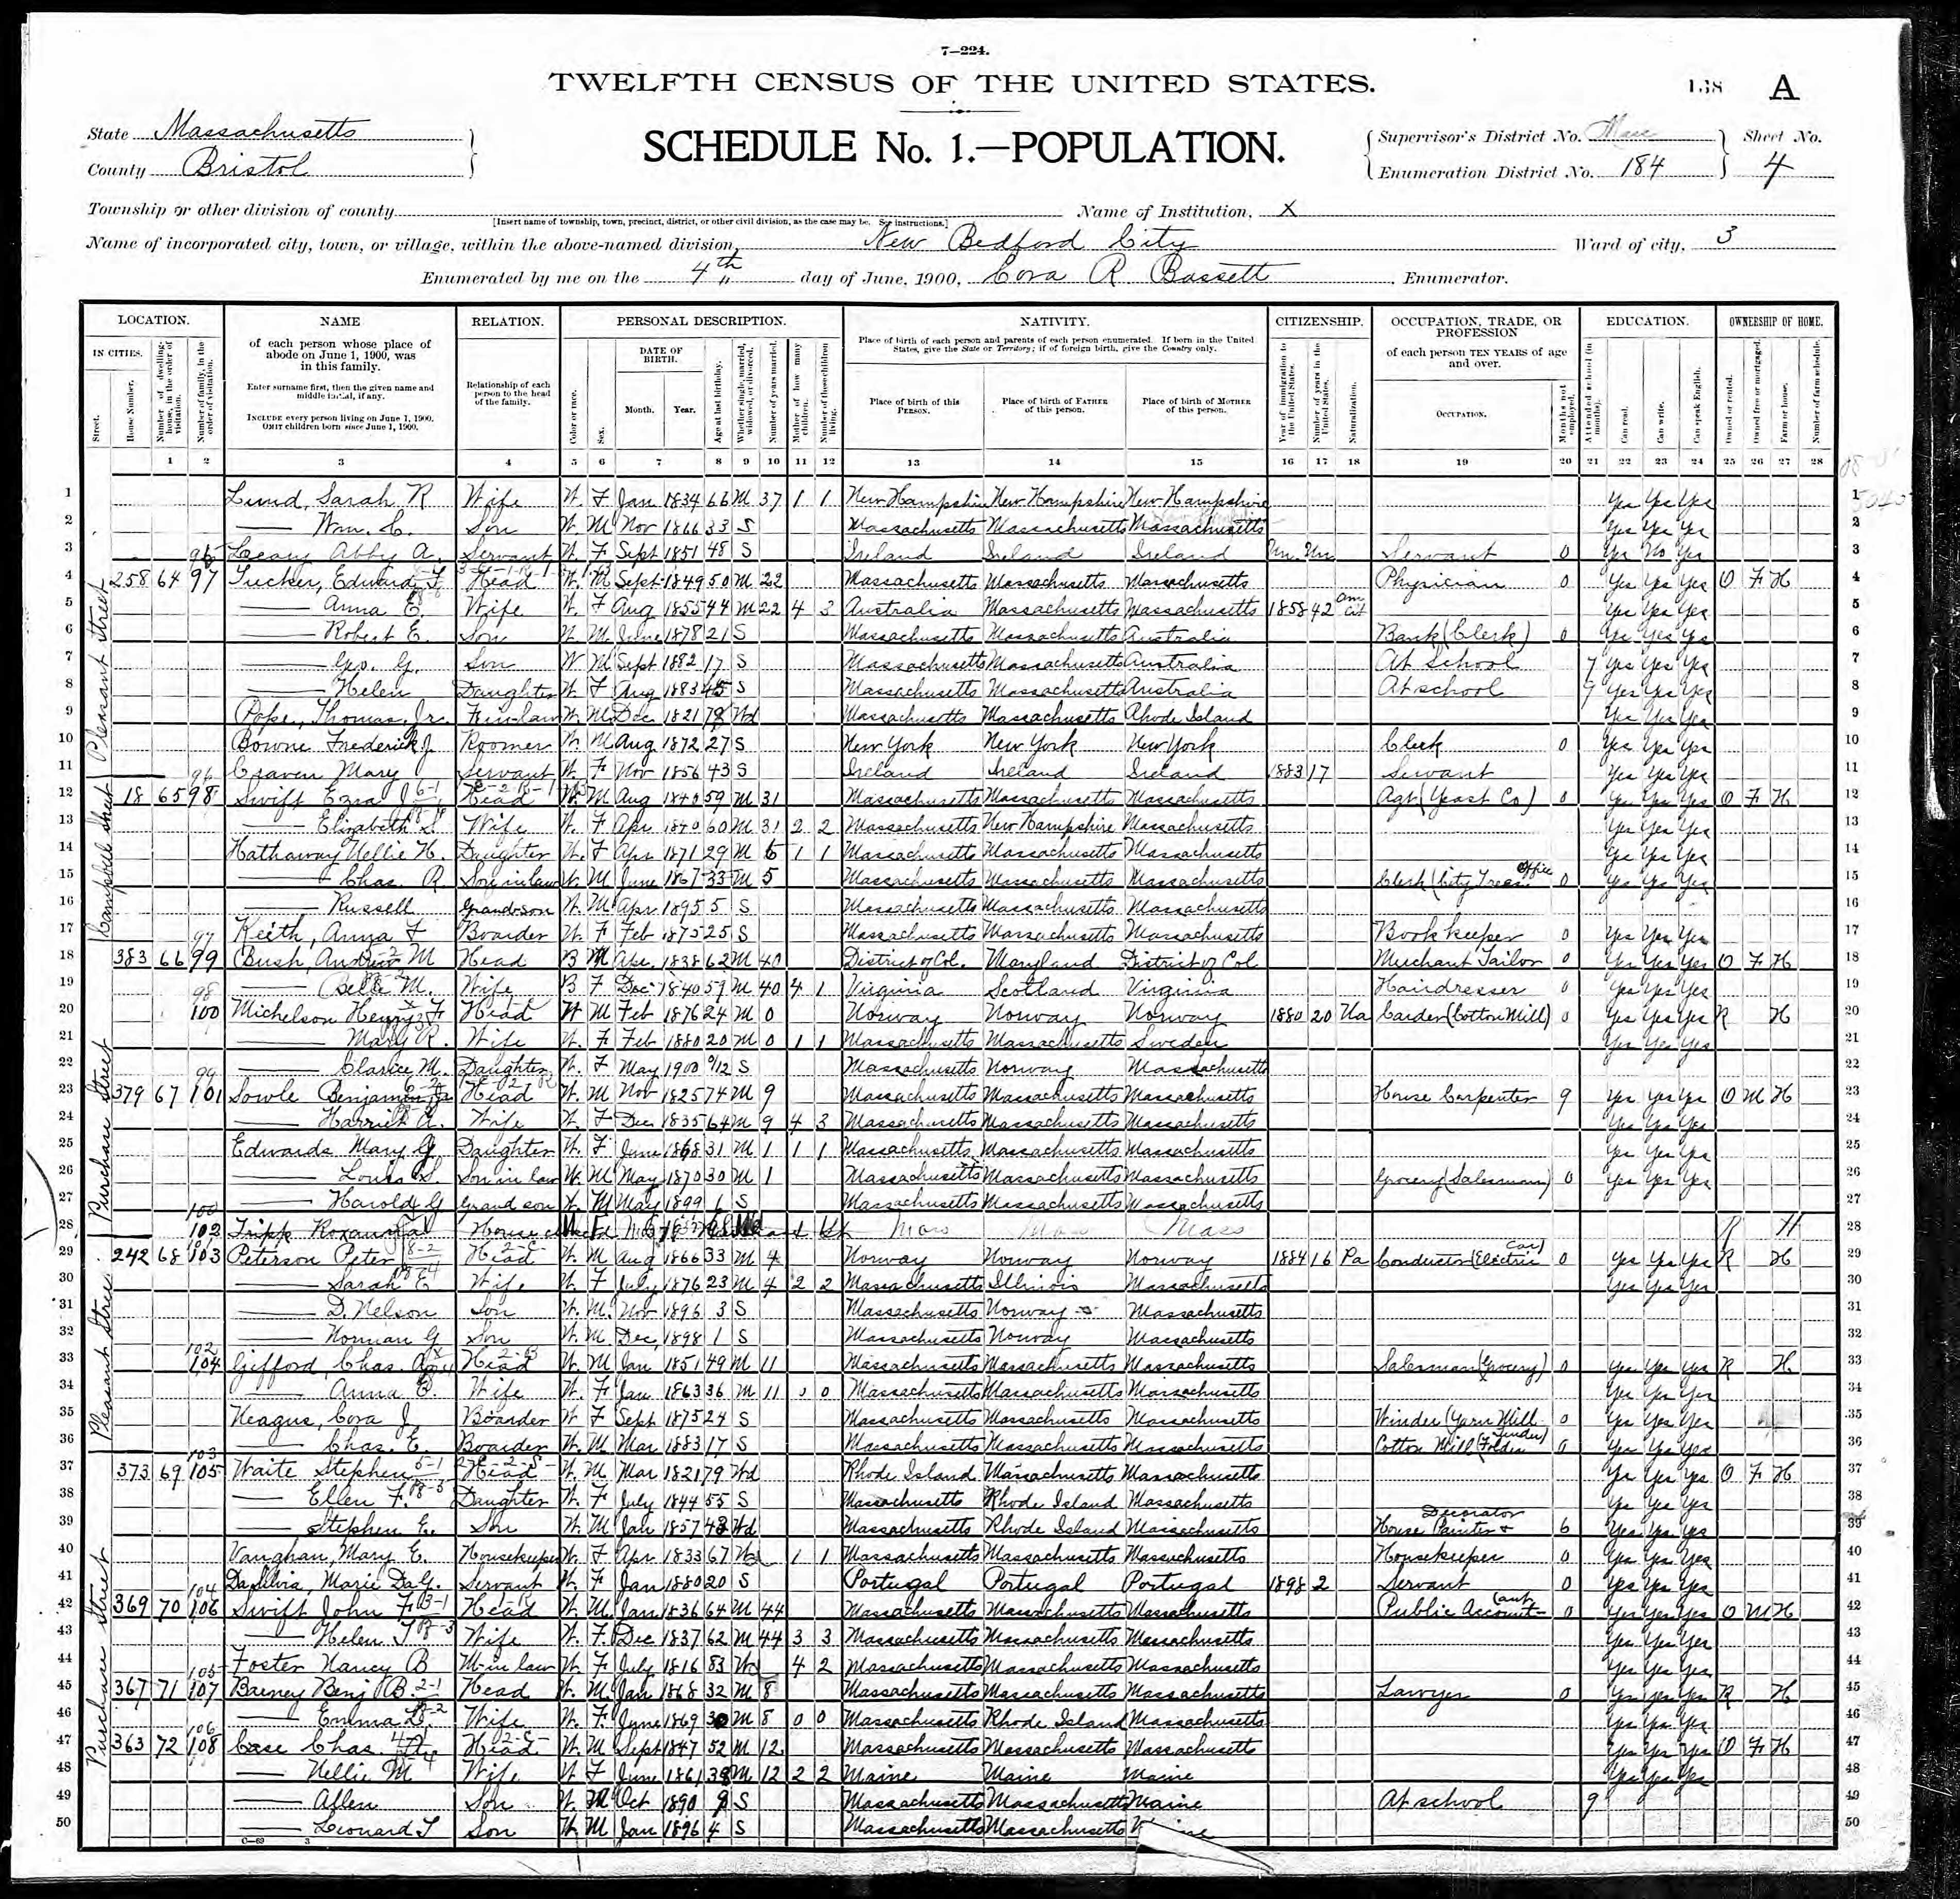 7—224.
TWELFTH CENSUS OF THE UNITED STATES.
138 A
State Massachusetts
County Bristol
SCHEDULE No. 1.—POPULATION.
Supervisor's District No. Mass
Enumeration District No. 184
Sheet No. 4
Township or other division of county
[Insert name of township, town, precinct, district, or other civil division, as the case may be. See instructions.]
Name of Institution, X
Name of incorporated city, town, or village, within the above-named division, New Bedford City
Ward of city, 3
Enumerated by me on the 4th day of June, 1900, Cora R. Bassett, Enumerator.
LOCATION. NAME RELATION. PERSONAL DESCRIPTION. NATIVITY. CITIZENSHIP. OCCUPATION, TRADE, OR PROFESSION EDUCATION. OWNERSHIP OF HOME.
IN CITIES. Street. House Number. Number of dwelling-house, in the order of visitation. Number of family, in the order of visitation.
of each person whose place of abode on June 1, 1900, was in this family.
Enter surname first, then the given name and middle initial, if any.
INCLUDE every person living on June 1, 1900. OMIT children born since June 1, 1900.
Relationship of each person to the head of the family.
Color or race. Sex. DATE OF BIRTH. Month. Year. Age at last birthday. Whether single, married, widowed, or divorced. Number of years married. Mother of how many children. Number of these children living.
Place of birth of each person and parents of each person enumerated. If born in the United States, give the State or Territory; if of foreign birth, give the Country only.
Place of birth of this PERSON. Place of birth of FATHER of this person. Place of birth of MOTHER of this person.
Year of immigration to the United States. Number of years in the United States. Naturalization.
of each person TEN YEARS of age and over.
OCCUPATION. Months not employed.
Attended school (in months). Can read. Can write. Can speak English. Owned or rented. Owned free or mortgaged. Farm or house. Number of farm schedule.
1 2 3 4 5 6 7 8 9 10 11 12 13 14 15 16 17 18 19 20 21 22 23 24 25 26 27 28
1 Lund, Sarah R Wife W. F Jan 1834 66 M 37 1 1 New Hampshire New Hampshire New Hampshire Yes Yes Yes 1
2 —— Wm. C. Son W. M Nov 1866 33 S Massachusetts Massachusetts Massachusetts Yes Yes Yes 2
3 Leary Abby A. Servant W. F Sept 1851 48 S Ireland Ireland Ireland Un Un Servant 0 Yes No Yes 3
Pleasant Street
4 258 64 97 Tucker, Edward T. Head W. M Sept 1849 50 M 22 Massachusetts Massachusetts Massachusetts Physician 0 Yes Yes Yes O F H 4
5 —— Anna C. Wife W. F Aug 1855 44 M 22 4 3 Australia Massachusetts Massachusetts 1858 42 Am Cit Yes Yes Yes 5
6 —— Robert E. Son W. M June 1878 21 S Massachusetts Massachusetts Australia Bank (Clerk) 0 Yes Yes Yes 6
7 —— Geo. G. Son W M Sept 1882 17 S Massachusetts Massachusetts Australia At school 7 Yes Yes Yes 7
8 —— Helen Daughter W. F Aug 1883 S Massachusetts Massachusetts Australia At school 7 Yes Yes Yes 8
9 Pope, Thomas, Jr. F-in-law W. M Dec 1821 78 Wd Massachusetts Massachusetts Rhode Island Yes Yes Yes 9
10 Bowne Frederick J Roomer W. M Aug 1872 27 S New York New York New York Clerk 0 Yes Yes Yes 10
11 Craven Mary Servant W. F Nov 1856 43 S Ireland Ireland Ireland 1883 17 Servant Yes Yes Yes 11
Campbell Street
12 18 65 98 Swift Ezra J Head W. M Aug 1840 59 M 31 Massachusetts Massachusetts Massachusetts Agt (Yeast Co) 0 Yes Yes Yes O F H 12
13 —— Elizabeth Wife W. F Apr 1840 60 M 31 2 2 Massachusetts New Hampshire Massachusetts Yes Yes Yes 13
14 Hathaway Nellie H. Daughter W. F Apr 1871 29 M 5 1 1 Massachusetts Massachusetts Massachusetts Yes Yes Yes 14
15 —— Chas. R. Son in law W. M June 1867 33 M 5 Massachusetts Massachusetts Massachusetts Clerk (City Treas Office 0 Yes Yes Yes 15
16 —— Russell Grandson W. M Apr 1895 5 S Massachusetts Massachusetts Massachusetts 16
17 Keith, Anna F Boarder W. F Feb 1875 25 S Massachusetts Massachusetts Massachusetts Bookkeeper 0 Yes Yes Yes 17
18 383 66 99 Bush, Andrew M Head B M Apr. 1838 62 M 40 District of Col. Maryland District of Col Merchant Tailor 0 Yes Yes Yes O F H 18
Purchase Street
19 —— Belle M. Wife B F Dec 1840 59 M 40 4 1 Virginia Scotland Virginia Hairdresser 0 Yes Yes Yes 19
20 100 Michelson Henry F Head W M Feb 1876 24 M 0 Norway Norway Norway 1880 20 Na Carder (Cotton Mill) 0 Yes Yes Yes R H 20
21 —— Mary R. Wife W. F Feb 1880 20 M 0 1 1 Massachusetts Massachusetts Sweden Yes Yes Yes 21
22 —— Clarice M. Daughter W. F May 1900 0/12 S Massachusetts Norway Massachusetts 22
23 379 67 101 Sowle Benjamin Head W. M Nov 1825 74 M 9 Massachusetts Massachusetts Massachusetts House Carpenter 9 Yes Yes Yes O M H 23
24 —— Harriet A. Wife W. F Dec 1835 64 M 9 4 3 Massachusetts Massachusetts Massachusetts Yes Yes Yes 24
25 Edwards Mary G Daughter W. F June 1868 31 M 1 1 1 Massachusetts Massachusetts Massachusetts Yes Yes Yes 25
26 —— Louis S. Son in law W. M May 1870 30 M 1 Massachusetts Massachusetts Massachusetts Grocery (Salesman) 0 Yes Yes Yes 26
27 —— Harold G Grand son W. M May 1899 1 S Massachusetts Massachusetts Massachusetts 27
28 102 Tripp Roxanna Mass Mass Mass R H 28
Pleasant Street
29 242 68 103 Peterson Peter Head W. M Aug 1866 33 M 4 Norway Norway Norway 1884 16 Pa Conductor (Electric Car) 0 Yes Yes Yes R H 29
30 —— Sarah E Wife W. F July 1876 23 M 4 2 2 Massachusetts Illinois Massachusetts Yes Yes Yes 30
31 —— D. Nelson Son W. M. Nov 1896 3 S Massachusetts Norway Massachusetts 31
32 —— Norman G Son W. M. Dec 1898 1 S Massachusetts Norway Massachusetts 32
33 104 Gifford, Chas. Head W. M Jan 1851 49 M 11 Massachusetts Massachusetts Massachusetts Salesman (Grocery) 0 Yes Yes Yes R H 33
34 —— Anna E. Wife W. F Jan 1863 36 M 11 0 0 Massachusetts Massachusetts Massachusetts Yes Yes Yes 34
35 Neagus, Cora J Boarder W F Sept 1875 24 S Massachusetts Massachusetts Massachusetts Winder (Yarn Mill 0 Yes Yes Yes 35
36 —— Chas. E. Boarder W. M Mar 1883 17 S Massachusetts Massachusetts Massachusetts Cotton Mill 0 Yes Yes Yes 36
Purchase Street
37 373 69 105 Waite Stephen Head W. M Mar 1821 79 Wd Rhode Island Massachusetts Massachusetts Yes Yes Yes O F H 37
38 —— Ellen F. Daughter W. F July 1844 55 S Massachusetts Rhode Island Massachusetts Yes Yes Yes 38
39 —— Stephen E. Son W. M Jan 1857 43 Wd Massachusetts Rhode Island Massachusetts House Painter & Decorator 6 Yes Yes Yes 39
40 Vaughan, Mary E. Housekeeper W. F Apr 1833 67 Wd 1 1 Massachusetts Massachusetts Massachusetts Housekeeper 0 Yes Yes Yes 40
41 DaSilvia, Marie DaG. Servant W. F Jan 1880 20 S Portugal Portugal Portugal 1898 2 Servant 0 Yes Yes Yes 41
42 369 70 106 Swift John F Head W. M. Jan 1836 64 M 44 Massachusetts Massachusetts Massachusetts Public Accountant 0 Yes Yes Yes O M H 42
43 —— Helen T Wife W. F. Dec 1837 62 M 44 3 3 Massachusetts Massachusetts Massachusetts Yes Yes Yes 43
44 Foster Nancy B M-in law W. F July 1816 83 Wd 4 2 Massachusetts Massachusetts Massachusetts Yes Yes Yes 44
45 367 71 107 Barney Benj B. Head W. M. Jan 1868 32 M 8 Massachusetts Massachusetts Massachusetts Lawyer 0 Yes Yes Yes R H 45
46 —— Emma Wife W. F. June 1869 30 M 8 0 0 Massachusetts Rhode Island Massachusetts Yes Yes Yes 46
47 363 72 108 Case Chas. Head W. M Sept 1847 52 M 12 Massachusetts Massachusetts Massachusetts Yes Yes Yes O F H 47
48 —— Nellie M Wife W F June 1861 38 M 12 2 2 Maine Maine Maine Yes Yes Yes 48
49 —— Allen Son W. M Oct 1890 9 S Massachusetts Massachusetts Maine At school 9 49
50 —— Leonard T Son W. M Jan 1896 4 S Massachusetts Massachusetts 50
C—69 3